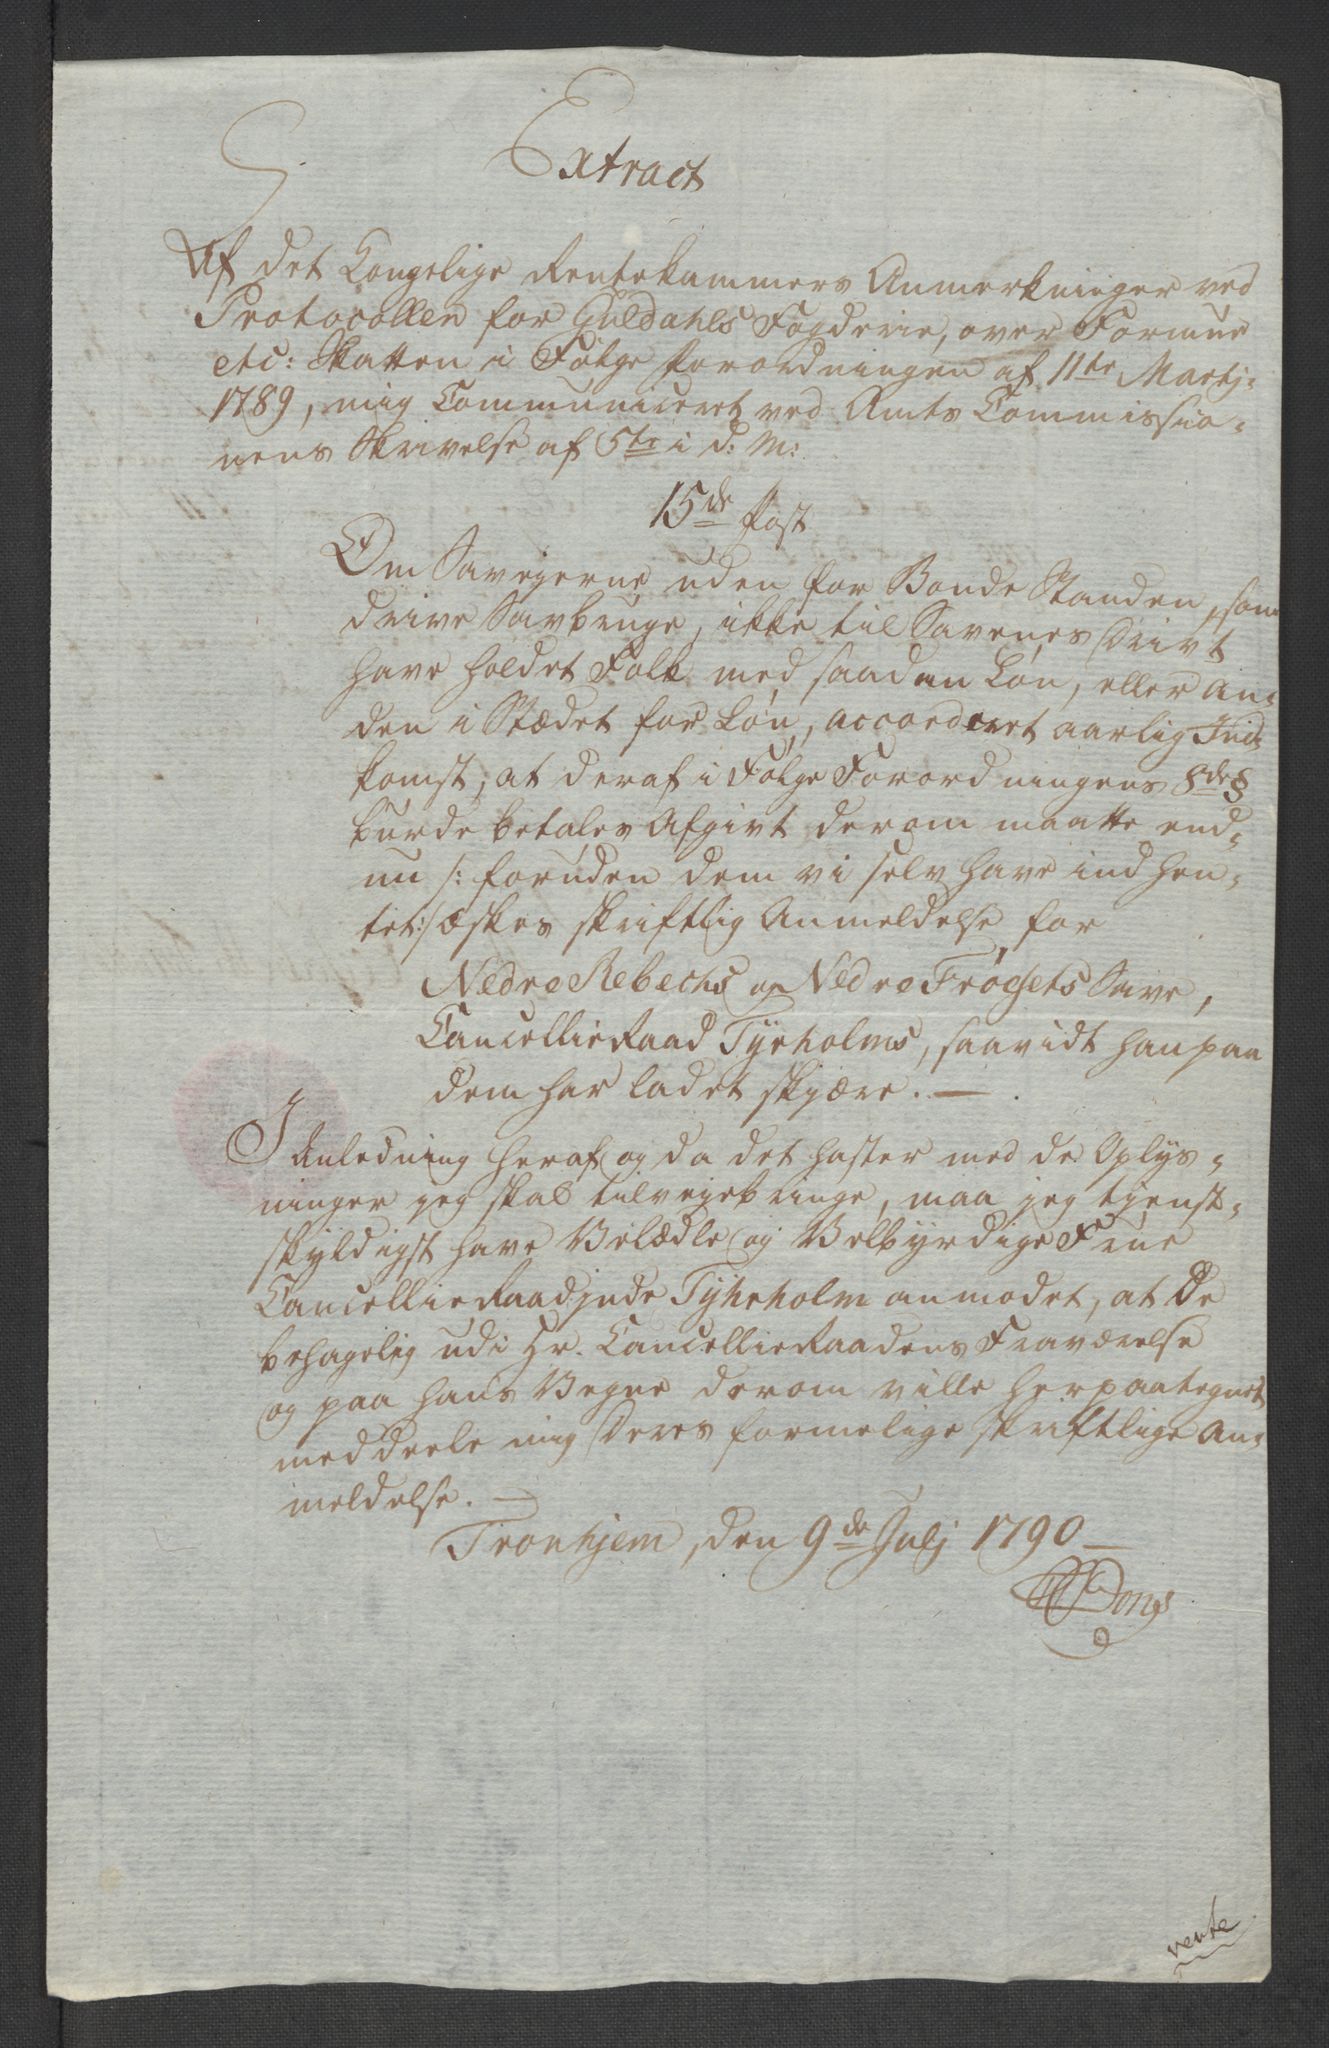 Extract
Af det Kongelige Rentekammers Anmerkninger ved
Protocollen for Guldahls Fogderie, over Formue
etc: Skatten i Følge forordningen af 11te Martj
1789, mig Communiceret ved Amts Commissio-
nens Skrivelse af 5te i d: M:
15de Post
Om Saveyerne uden for Bonde Standen, som
drive Savbruge, ikke til Savenes Drivt
have holdet Folk med saadan Løn, eller an-
den i Stædet for Løn, accorderet aarlig Ind-
komst, at deraf i Følge Forordningens 8de §
burde betales Afgivt derom maatte end-
nu /: foruden dem vi selv have indhen-
tet :/ æskes skriftlig Anmeldelse for
Nedre Rebechs og Nedre Frøsets Save,
Cancellie Raad Tyrholms, saavidt han paa
dem har ladet skjære. —
I Anledning heraf og da det haster med de Oplys-
ninger jeg skal tilvejebringe, maa jeg tjenst-
skyldigst have Velædle og Velbyrdige Frue
Cancellie Raadjnde Tyhrholm anmodet, at De
behagelig udi Hr. Cancellie Raadens Fraværelse
og paa hans Vegne derom ville herpaategnet
meddeele mig Deres formelige skriftlige An-
meldelse. —
Tronhjem, den 9de Julj 1790 —
Dons
vente